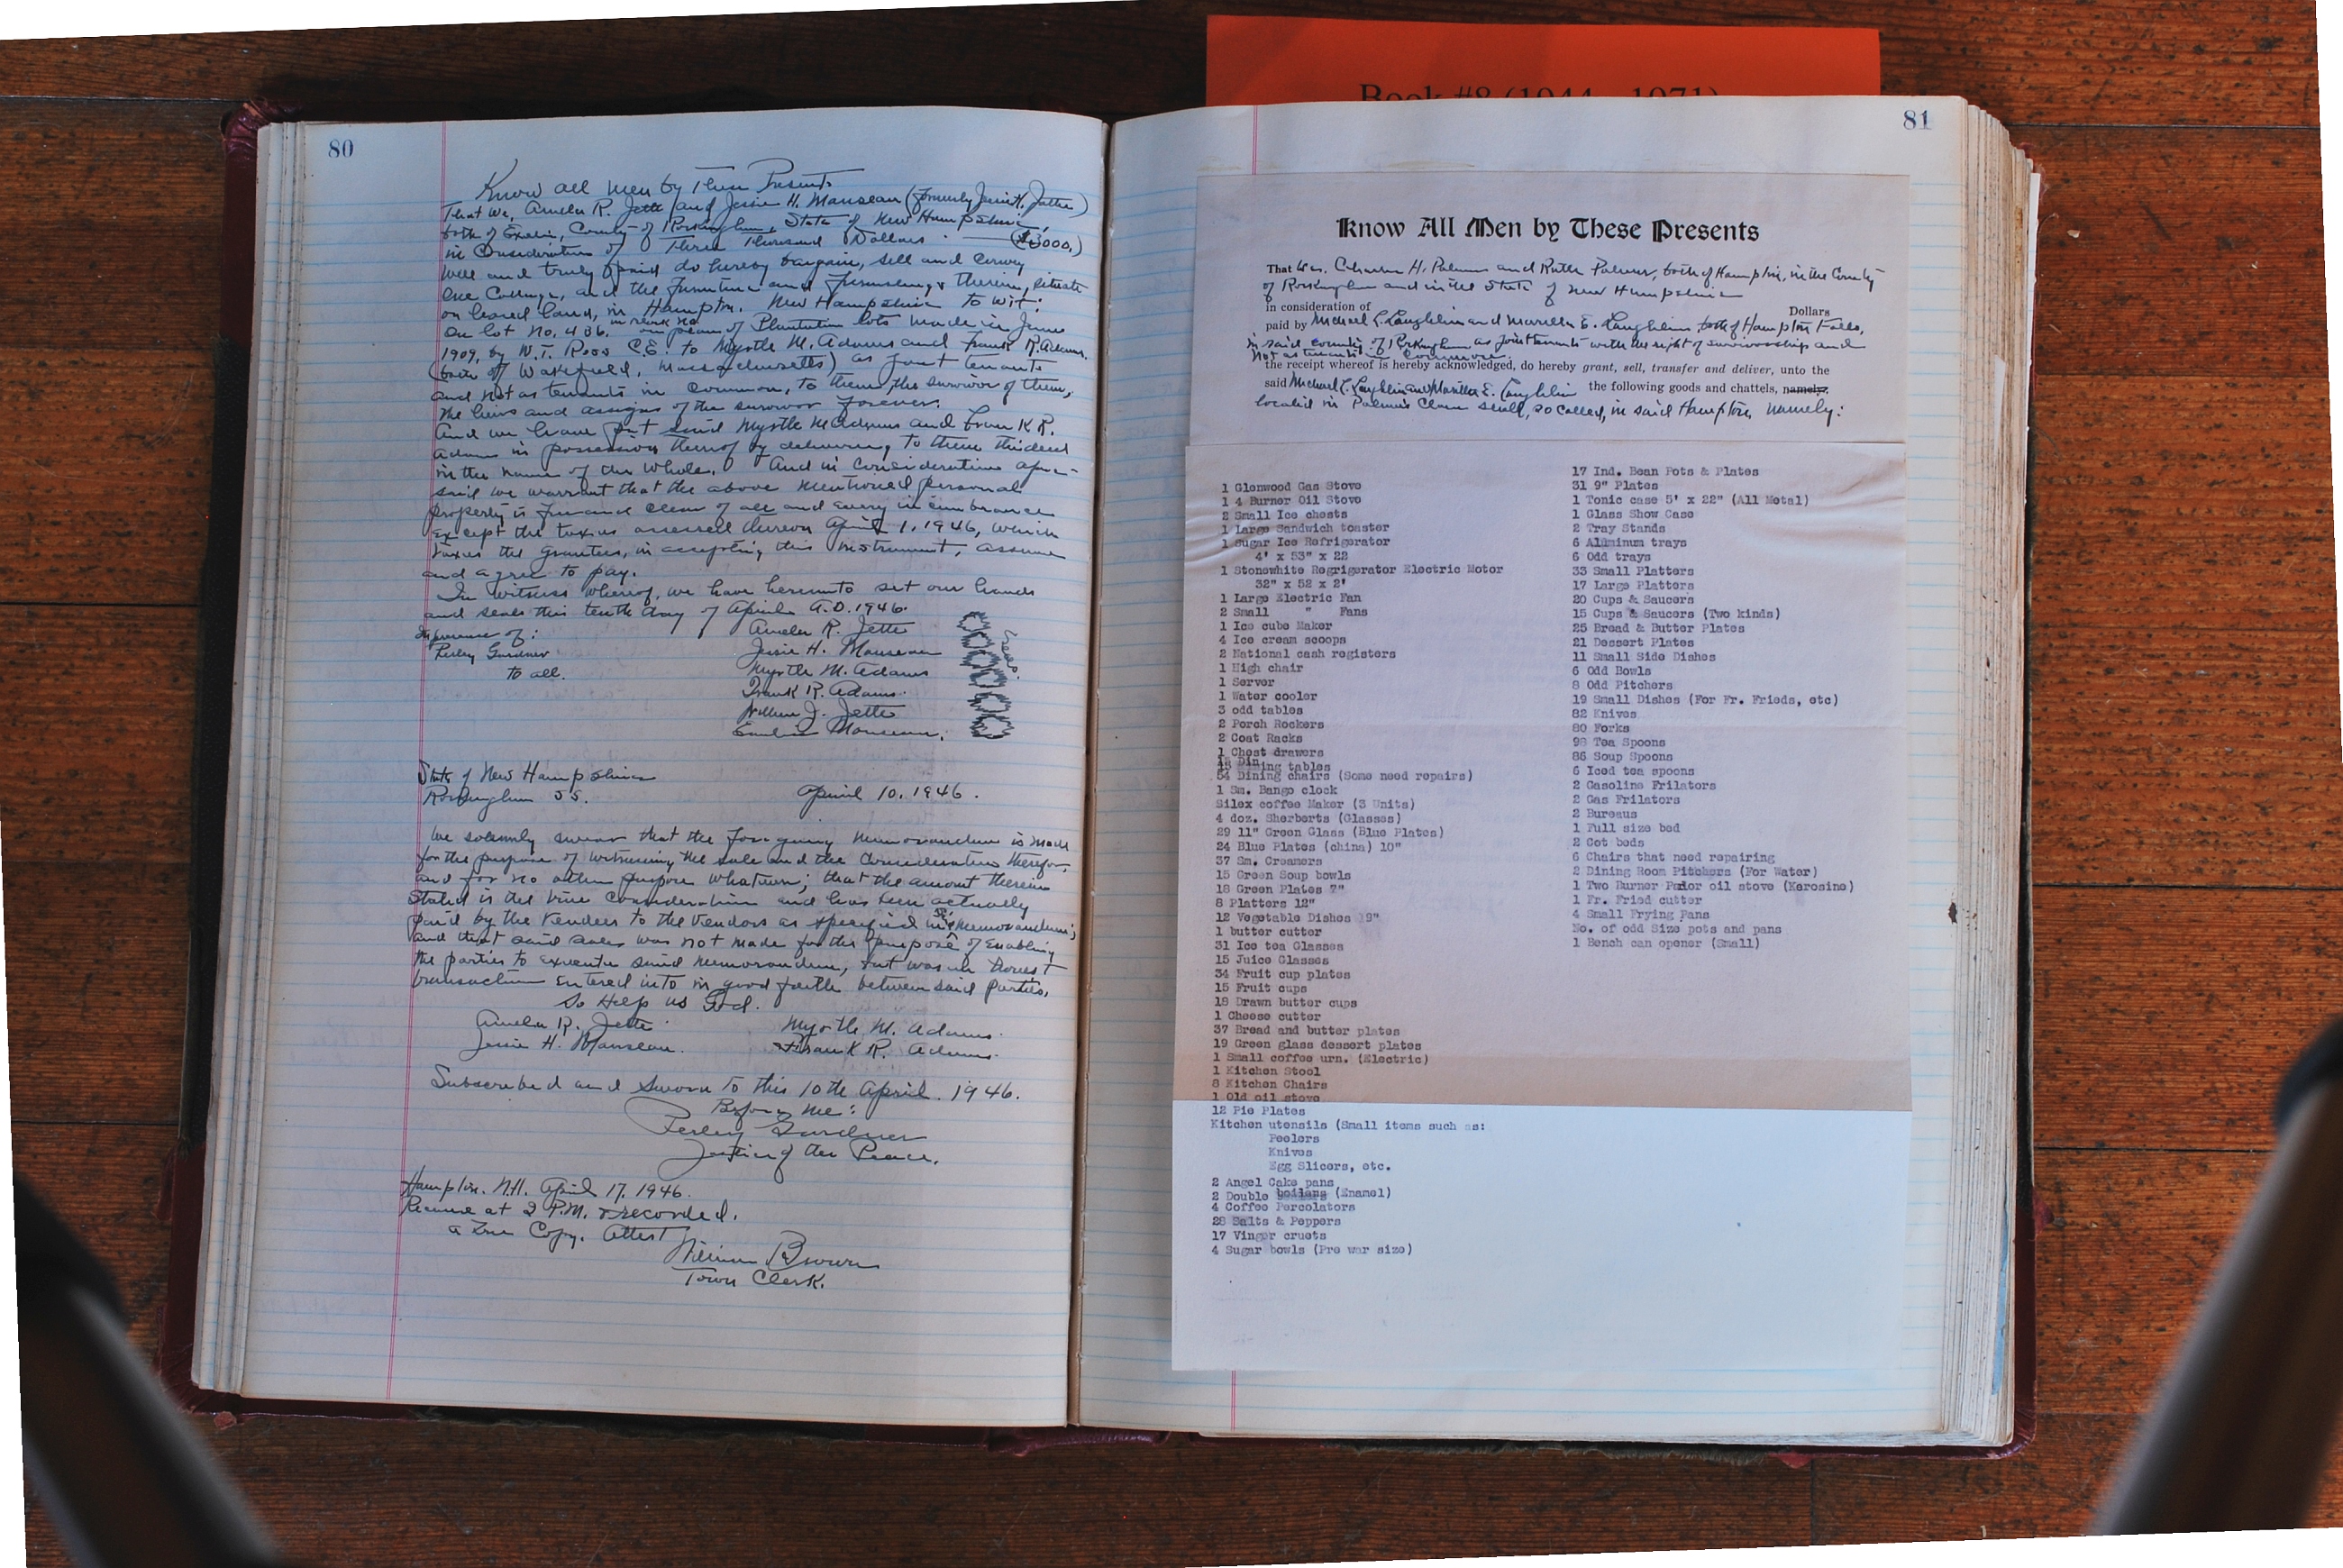 Book #8 (1944 - 1971)
80
Know all men by These Presents
That We, Amelia R. Jette and Jessie H. Manseau (formerly Jessie H. Jette)
both of Exeter, County of Rockingham, State of New Hampshire,
in Consideration of Three Thousand Dollars ($3000.)
well and truly paid do hereby bargain, sell and convey
One Cottage, and the furniture and furnishings therein, situate
on leased land, in Hampton, New Hampshire to wit:
On lot No. 486. on plan of Plantation lots made in June
1909, by W.T. Ross C.E. to Myrtle M. Adams and Frank R. Adams.
(both of Wakefield, Massachusetts) as joint tenants
and not as tenants in common, to them, the survivor of them,
the heirs and assigns of the survivor forever.
And we have put said Myrtle M. Adams and Frank R.
Adams in possession thereof by delivering to them the deed
in the name of the whole. And in consideration afore-
said we warrant that the above mentioned personal
property is free and clear of all and every incumbrance
except the taxes assessed thereon April 1, 1946, which
taxes the grantees, in accepting this instrument, assume
and agree to pay.
In witness whereof, we have hereunto set our hands
and seals this tenth day of April A.D. 1946.
In presence of:
Perley Gardner
to all.
Amelia R. Jette
Jessie H. Manseau
Myrtle M. Adams
Frank R. Adams.
William J. Jette
Manseau.
Seals.
State of New Hampshire
Rockingham SS.
April 10, 1946.
We solemnly swear that the foregoing memorandum is made
for the purpose of witnessing the sale and the consideration therefor,
and for no other purpose whatever; that the amount therein
stated is the true consideration and has been actually
paid by the Vendees to the Vendors as specified in said memorandum;
and that said sale was not made for the purpose of enabling
the parties to execute said memorandum, but was an honest
transaction entered into in good faith between said parties.
So Help us God.
Amelia R. Jette Myrtle M. Adams.
Jessie H. Manseau. Frank R. Adams.
Subscribed and sworn to this 10th April. 1946.
Before me:
Perley Gardner
Justice of the Peace.
Hampton. N.H. April 17, 1946.
Received at 2 P.M. & recorded.
a True Copy. Attest
William Brown
Town Clerk.
81
Know All Men by These Presents
That We, Charles H. Palmer and Ruth Palmer, both of Hampton, in the County
of Rockingham and in the State of New Hampshire
in consideration of Dollars
paid by Michael L. Laughlin and Marilla E. Laughlin both of Hampton Falls,
in said county of Rockingham as joint tenants with the right of survivorship and
not as tenants in common.
the receipt whereof is hereby acknowledged, do hereby grant, sell, transfer and deliver, unto the
said Michael L. Laughlin and Marilla E. Laughlin the following goods and chattels, namely:
located in Palmer's Clam Shell, so called, in said Hampton, namely:
1 Glenwood Gas Stove
1 4 Burner Oil Stove
2 Small Ice chests
1 Large Sandwich toaster
1 Sugar Ice Refrigerator
4' x 53" x 22
1 Stonewhite Regrigerator Electric Motor
32" x 52 x 2'
1 Large Electric Fan
2 Small " Fans
1 Ice cube Maker
4 Ice cream scoops
2 National cash registers
1 High chair
1 Server
1 Water cooler
3 odd tables
2 Porch Rockers
2 Coat Racks
1 Chest drawers
Dining tables
54 Dining chairs (Some need repairs)
1 Sm. Bango clock
Silex coffee Maker (3 Units)
4 doz. Sherberts (Glasses)
29 11" Green Glass (Blue Plates)
24 Blue Plates (china) 10"
37 Sm. Creamers
15 Green Soup bowls
18 Green Plates 7"
8 Platters 12"
12 Vegetable Dishes 9"
1 butter cutter
31 Ice tea Glasses
15 Juice Glasses
34 Fruit cup plates
15 Fruit cups
18 Drawn butter cups
1 Cheese cutter
37 Bread and butter plates
19 Green glass dessert plates
1 Small coffee urn. (Electric)
1 Kitchen Stool
8 Kitchen Chairs
1 Old oil stove
12 Pie Plates
Kitchen utensils (Small items such as:
Peelers
Knives
Egg Slicers, etc.
2 Angel Cake pans
2 Double boilers (Enamel)
4 Coffee Percolators
28 Salts & Peppers
17 Vinger cruets
4 Sugar bowls (Pre war size)
17 Ind. Bean Pots & Plates
31 9" Plates
1 Tonic case 5' x 22" (All Metal)
1 Glass Show Case
2 Tray Stands
6 Aluminum trays
6 Odd trays
33 Small Platters
17 Large Platters
20 Cups & Saucers
15 Cups & Saucers (Two kinds)
25 Bread & Butter Plates
21 Dessert Plates
11 Small Side Dishes
6 Odd Bowls
8 Odd Pitchers
19 Small Dishes (For Fr. Frieds, etc)
82 Knives
80 Forks
98 Tea Spoons
86 Soup Spoons
6 Iced tea spoons
2 Gasoline Frilators
2 Gas Frilators
2 Bureaus
1 Full size bed
2 Cot beds
6 Chairs that need repairing
2 Dining Room Pitchers (For Water)
1 Two Burner Palor oil stove (Kerosine)
1 Fr. Fried cutter
4 Small Frying Pans
No. of odd Size pots and pans
1 Bench can opener (Small)